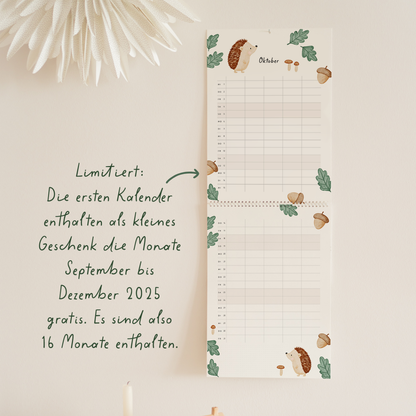 Oktober
Limitiert:
Die ersten Kalender
enthalten als kleines
Geschenk die Monate
September bis
Dezember 2025
gratis. Es sind also
16 Monate enthalten.